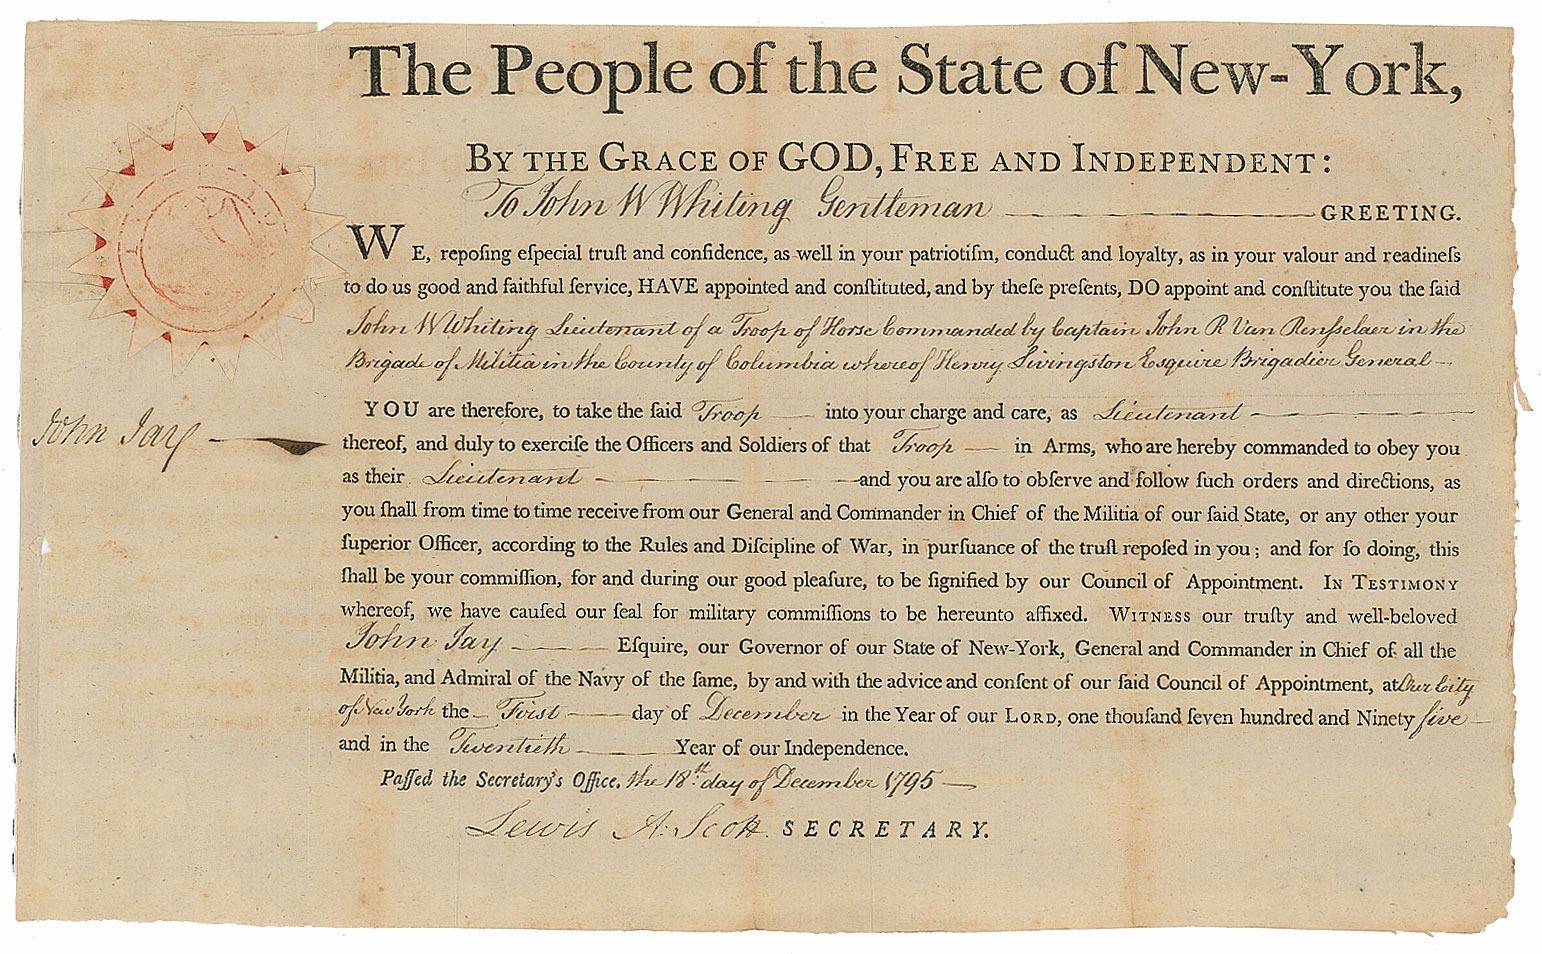 The People of the State of New-York,
By the Grace of GOD, Free and Independent:
To John W Whiting Gentleman GREETING.
WE, repoſing eſpecial truſt and confidence, as well in your patriotiſm, conduct and loyalty, as in your valour and readineſs
to do us good and faithful ſervice, HAVE appointed and conſtituted, and by theſe preſents, DO appoint and conſtitute you the ſaid
John W Whiting Lieutenant of a Troop of Horse Commanded by Captain John R Van Renſselaer in the
Brigade of Militia in the County of Columbia whereof Henry Livingston Esquire Brigadier General
YOU are therefore, to take the ſaid Troop into your charge and care, as Lieutenant
John Jay
thereof, and duly to exerciſe the Officers and Soldiers of that Troop in Arms, who are hereby commanded to obey you
as their Lieutenant and you are alſo to obſerve and follow ſuch orders and directions, as
you ſhall from time to time receive from our General and Commander in Chief of the Militia of our ſaid State, or any other your
ſuperior Officer, according to the Rules and Diſcipline of War, in purſuance of the truſt repoſed in you; and for ſo doing, this
ſhall be your commiſſion, for and during our good pleaſure, to be ſignified by our Council of Appointment. In Testimony
whereof, we have cauſed our ſeal for military commiſſions to be hereunto affixed. Witness our truſty and well-beloved
John Jay Eſquire, our Governor of our State of New-York, General and Commander in Chief of all the
Militia, and Admiral of the Navy of the ſame, by and with the advice and conſent of our ſaid Council of Appointment, at Our City
of New York the First day of December in the Year of our Lord, one thouſand ſeven hundred and Ninety five
and in the Twentieth Year of our Independence.
Paſſed the Secretary's Office, the 18th day of December 1795
Lewis A. Scott SECRETARY.